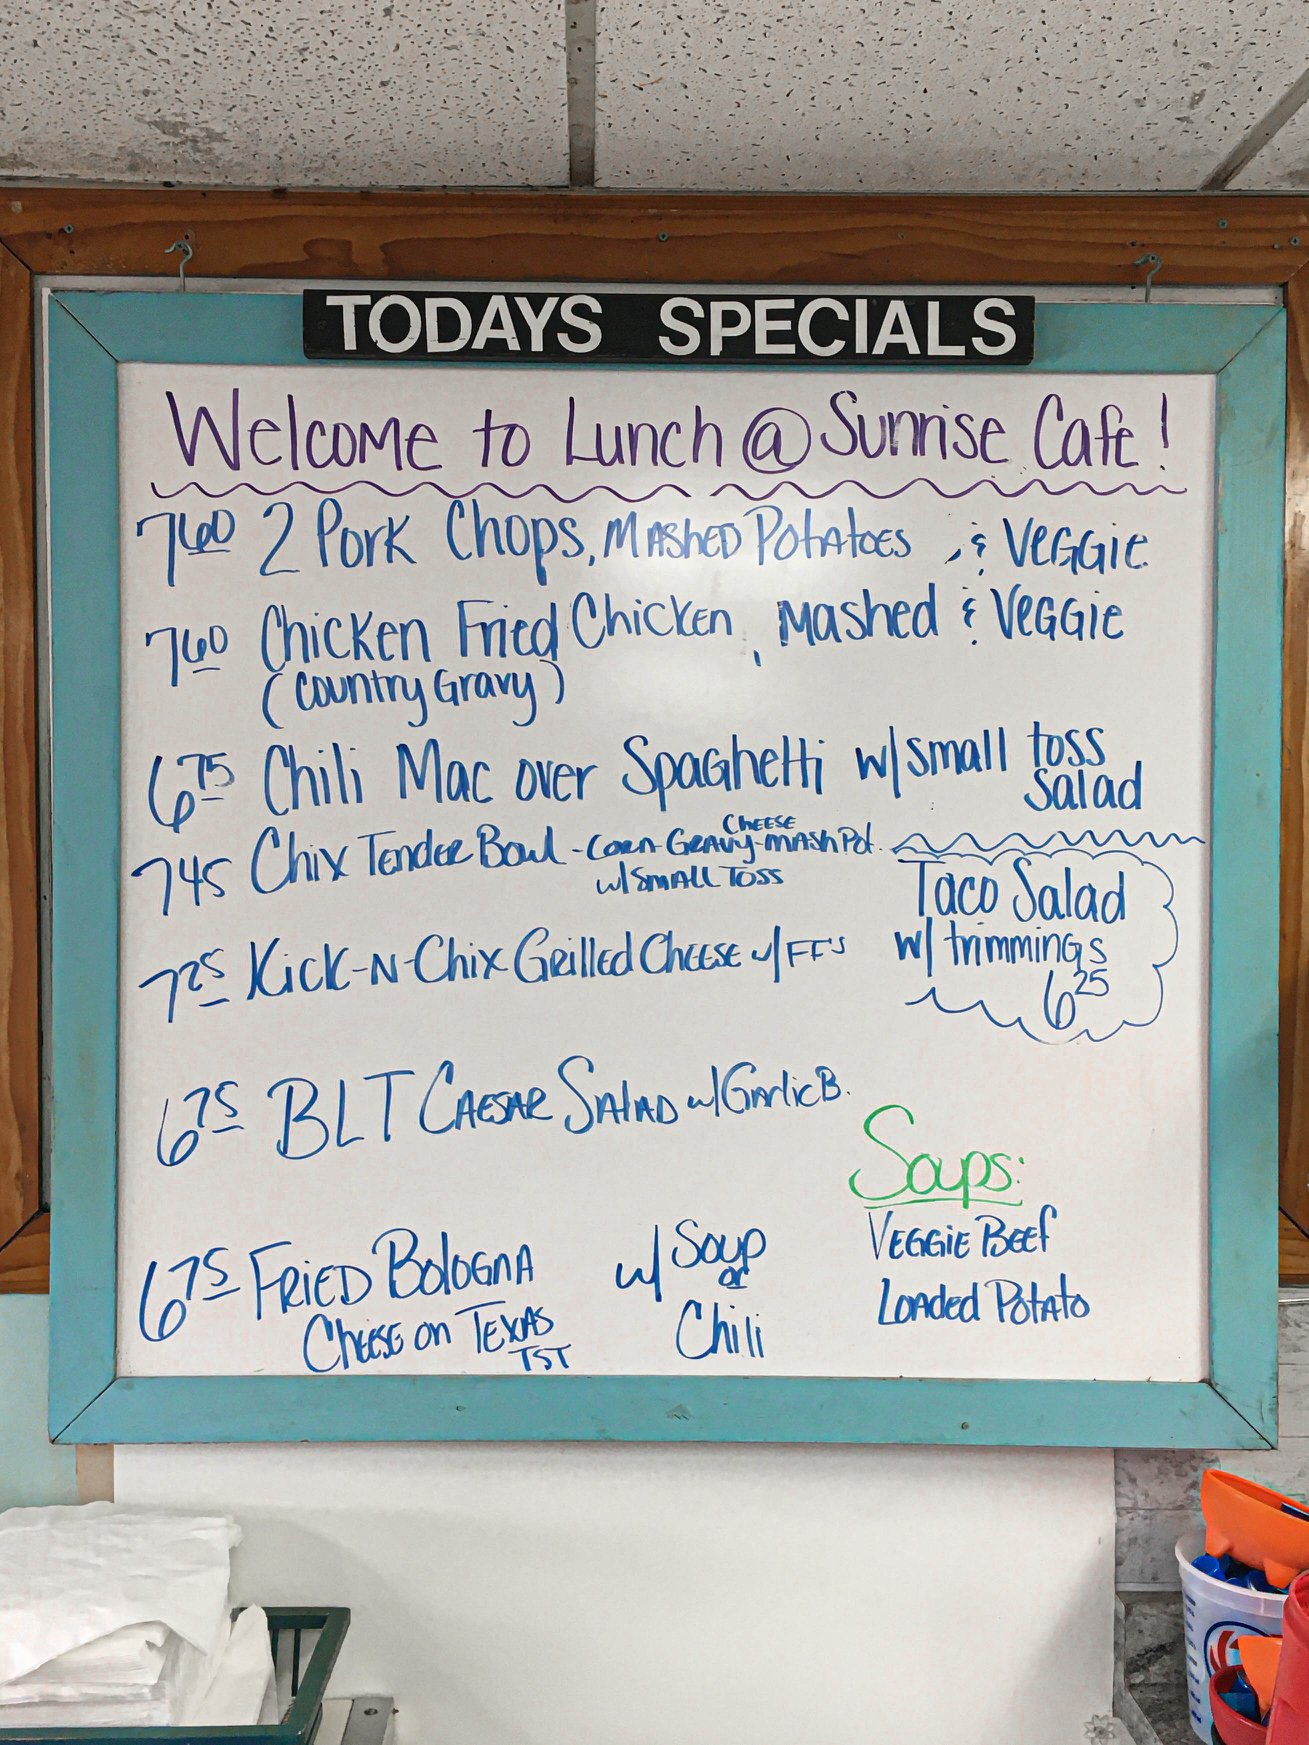 TODAYS SPECIALS
Welcome to Lunch @ Sunrise Cafe!
7 60 2 Pork Chops, Mashed Potatoes, & Veggie
7 60 Chicken Fried Chicken, Mashed & Veggie
(Country Gravy)
6 75 Chili Mac over Spaghetti w/ small toss
salad
7 45 Chix Tender Bowl - Corn - Gravy - Cheese - Mash Pot.
w/ Small Toss
Taco Salad
w/ trimmings
6 25
7 25 Kick-N-Chix Grilled Cheese w/ FF's
6 75 BLT Caesar Salad w/ Garlic B.
6 75 Fried Bologna
Cheese on Texas
TST
w/ Soup
or
Chili
Soups:
Veggie Beef
Loaded Potato